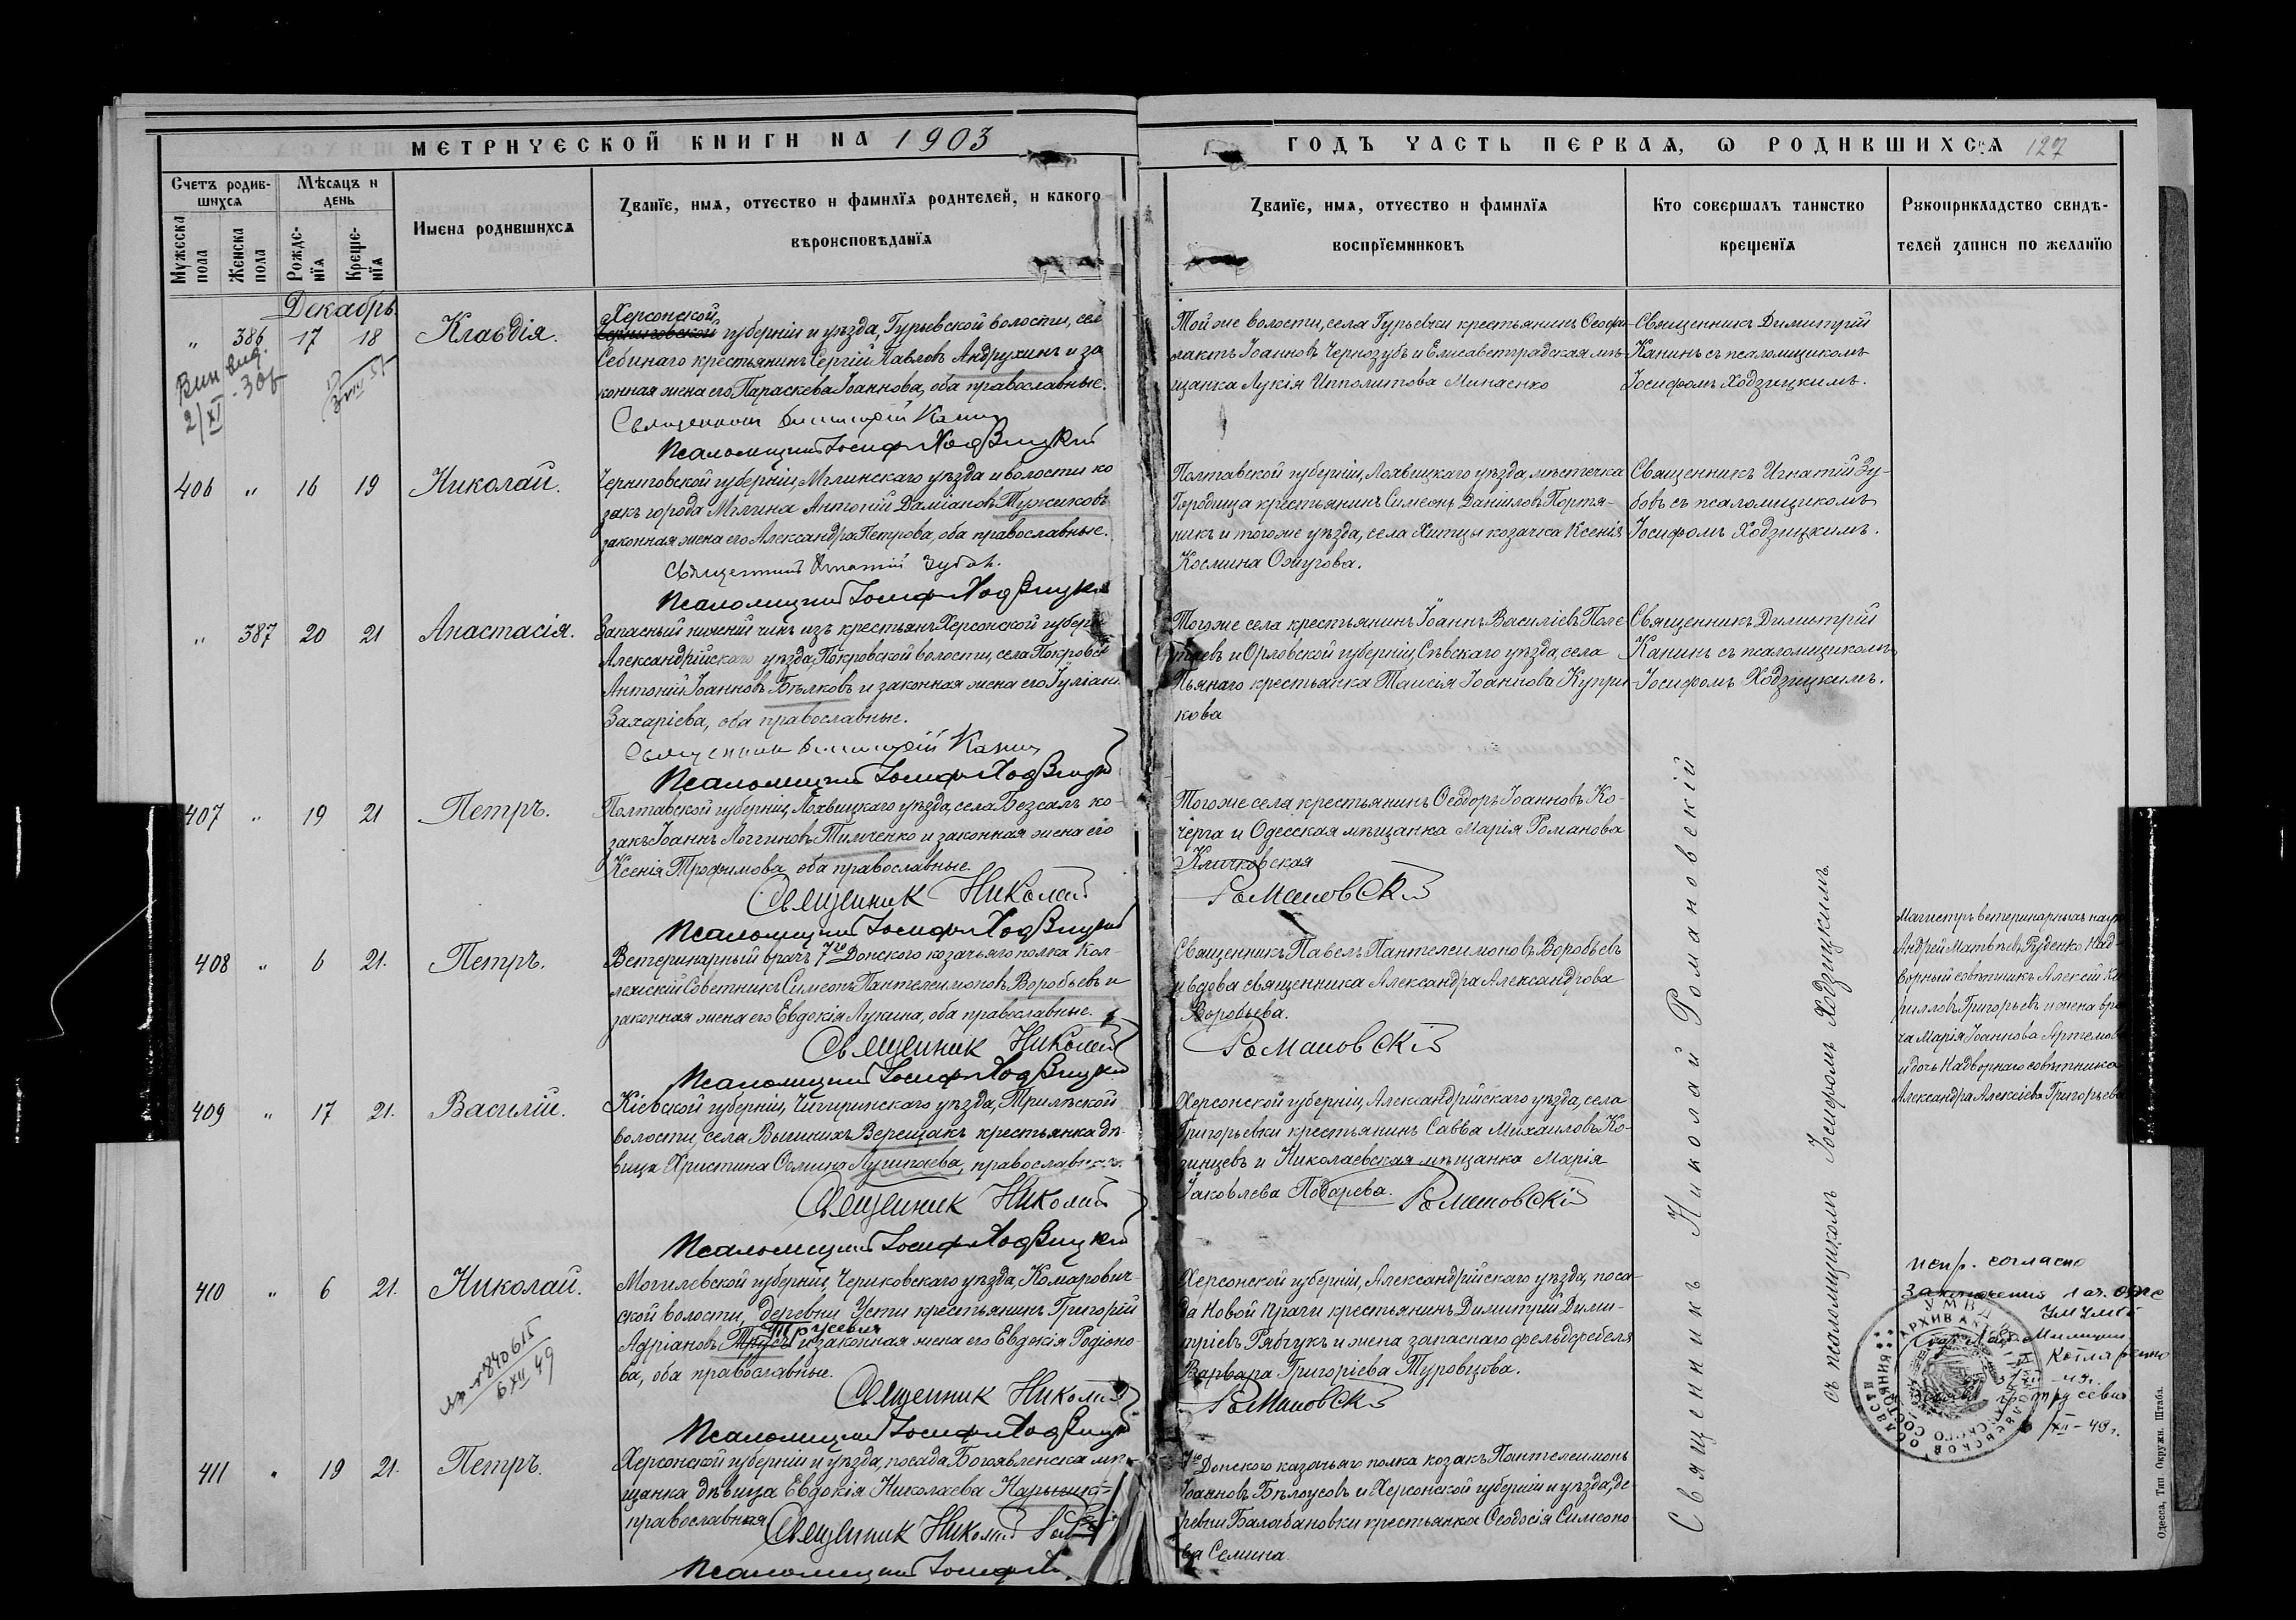 МЕТРИЧЕСКОЙ КНИГИ НА 1903
ГОДЪ ЧАСТЬ ПЕРВАѦ, Ѡ РОДИВШИХСѦ 127
Счетъ родив-
шихсѧ
Мѣсѧцъ и
день
Мꙋжеска
пола
Женска
пола
Рожде-
нїѧ
Креще-
нїѧ
Имена родившихсѧ
Званїе, имѧ, отчество и фамилїѧ родителей, и какого
вѣроисповѣданїѧ
Званїе, имѧ, отчество и фамилїѧ
воспрїемниковъ
Кто совершалъ таинство
крещенїѧ
Рꙋкоприкладство свидѣ-
телей записи по желанїю
Декабрь
„ 386 17 18 Клавдія.
Херсонской
Черниговской губерніи и уѣзда, Гурьевской волости, сел
Себинаго крестьянинъ Сергій Павловъ Андрухинъ и за
конная жена его Параскева Іоаннова, оба православные.
Священникъ Димитрій Канинъ
Псаломщикъ Іосифъ Ходзицкій
Той же волости, села Гурьевки крестьянинъ Ѳеофи-
лактъ Іоанновъ Чернозубъ и Елисаветградская мѣ-
щанка Лукія Ипполитова Минаенко
Священникъ Димитрій
Канинъ съ псаломщикомъ
Іосифомъ Ходзицкимъ.
406 „ 16 19 Николай.
Черниговской губерніи, Мглинскаго уѣзда и волости ко
закъ города Мглина Антоній Даміановъ Тужиковъ
законная жена его Александра Петрова, оба православные.
Священникъ Игнатій Зубовъ.
Псаломщикъ Іосифъ Ходзицкій
Полтавской губерніи, Лохвицкаго уѣзда, мѣстечка
Городища крестьянинъ Симеонъ Даніиловъ Портя-
никъ и того же уѣзда, села Хитцы козачка Ксенія
Космина Ожугова.
Священникъ Игнатій Зу-
бовъ съ псаломщикомъ
Іосифомъ Ходзицкимъ.
„ 387 20 21 Анастасія.
Запасный нижній чинъ изъ крестьянъ Херсонской губерн
Александрійскаго уѣзда, Покровской волости, села Покровск
Антоній Іоанновъ Бѣлковъ и законная жена его Іуліан
Захаріева, оба православные.
Священникъ Димитрій Канинъ
Псаломщикъ Іосифъ Ходзицкій
Того же села крестьянинъ Іоаннъ Василіевъ Поле-
таевъ и Орловской губерніи, Сѣвскаго уѣзда, села
Пьянаго крестьянка Таисія Іоаннова Купри-
кова
Священникъ Димитрій
Канинъ съ псаломщикомъ
Іосифомъ Ходзицкимъ.
407 „ 19 21 Петръ.
Полтавской губерніи, Лохвицкаго уѣзда, села Безсалъ ко-
закъ Іоаннъ Логгиновъ Тимченко и законная жена его
Ксенія Трофимова, оба православные.
Священник Николай Романовскій
Псаломщикъ Іосифъ Ходзицкій
Того же села крестьянинъ Ѳеодоръ Іоанновъ Ко-
черга и Одесская мѣщанка Марія Романова
Климковская
408 „ 6 21. Петръ.
Ветеринарный врачъ 7го Донского козачьяго полка Кол-
лежскій Советникъ Симеонъ Пантелеимоновъ Воробьевъ и
законная жена его Евдокія Лукина, оба православные.
Священник Николай Романовскій
Псаломщикъ Іосифъ Ходзицкій
Священникъ Павелъ Пантелеимоновъ Воробьевъ
и вдова священника Александра Александрова
Воробьева.
Магистръ ветеринарныхъ наук
Андрей Матвѣевъ Руденко Над-
ворный совѣтникъ Алексій Ки
рилловъ Григорьевъ и жена вра
ча Марія Іоаннова Артемов
и дочь Надворнаго совѣтника
Александра Алексіева Григорьева
409 „ 17 21. Василій.
Кіевской губерніи, Чигиринскаго уѣзда, Трилѣской
волости, села Вышнихъ Верещакъ крестьянка дѣ-
вица Христина Ѳомина Лушпаева, православная.
Священник Николай Романовскій
Псаломщикъ Іосифъ Ходзицкій
Херсонской губерніи, Александрійскаго уѣзда, села
Григорьевки крестьянинъ Савва Михаиловъ Ко-
зинцевъ и Николаевская мѣщанка Марія
Іаковлева Подарева.
410 „ 6 21. Николай.
Могилевской губерніи, Чериковскаго уѣзда, Комарович-
ской волости, деревни Усти крестьянинъ Григорій
Трусевич
Адріановъ Трусъ и законная жена его Евдокія Родіоно-
ва, оба православные.
Священник Николай Романовскій
Псаломщикъ Іосифъ Ходзицкій
Херсонской губерніи, Александрійскаго уѣзда, поса-
да Новой Праги крестьянинъ Димитрій Дими-
тріевъ Рябчукъ и жена запаснаго фельдфебеля
Варвара Григоріева Туровцова.
испр. согласно
заключения
Милиции
Трусевич
XII-49г.
840615
6 XII 49
411 „ 19 21. Петръ.
Херсонской губерніи и уѣзда, посада Богоявленска мѣ-
щанка дѣвица Евдокія Николаева
православная
Священник Николай
Псаломщикъ Іосифъ
7го Донского казачьяго полка козакъ Пантелеимонъ
Іоанновъ Бѣлоусовъ и Херсонской губерніи и уѣзда, де
ревни Балабановки крестьянка Ѳеодосія Симеоно
ва Семина
Священникъ Николай Романовскій
съ псаломщикомъ Іосифомъ Ходзицкимъ.
Одесса, Тип. Окружн. Штаба.